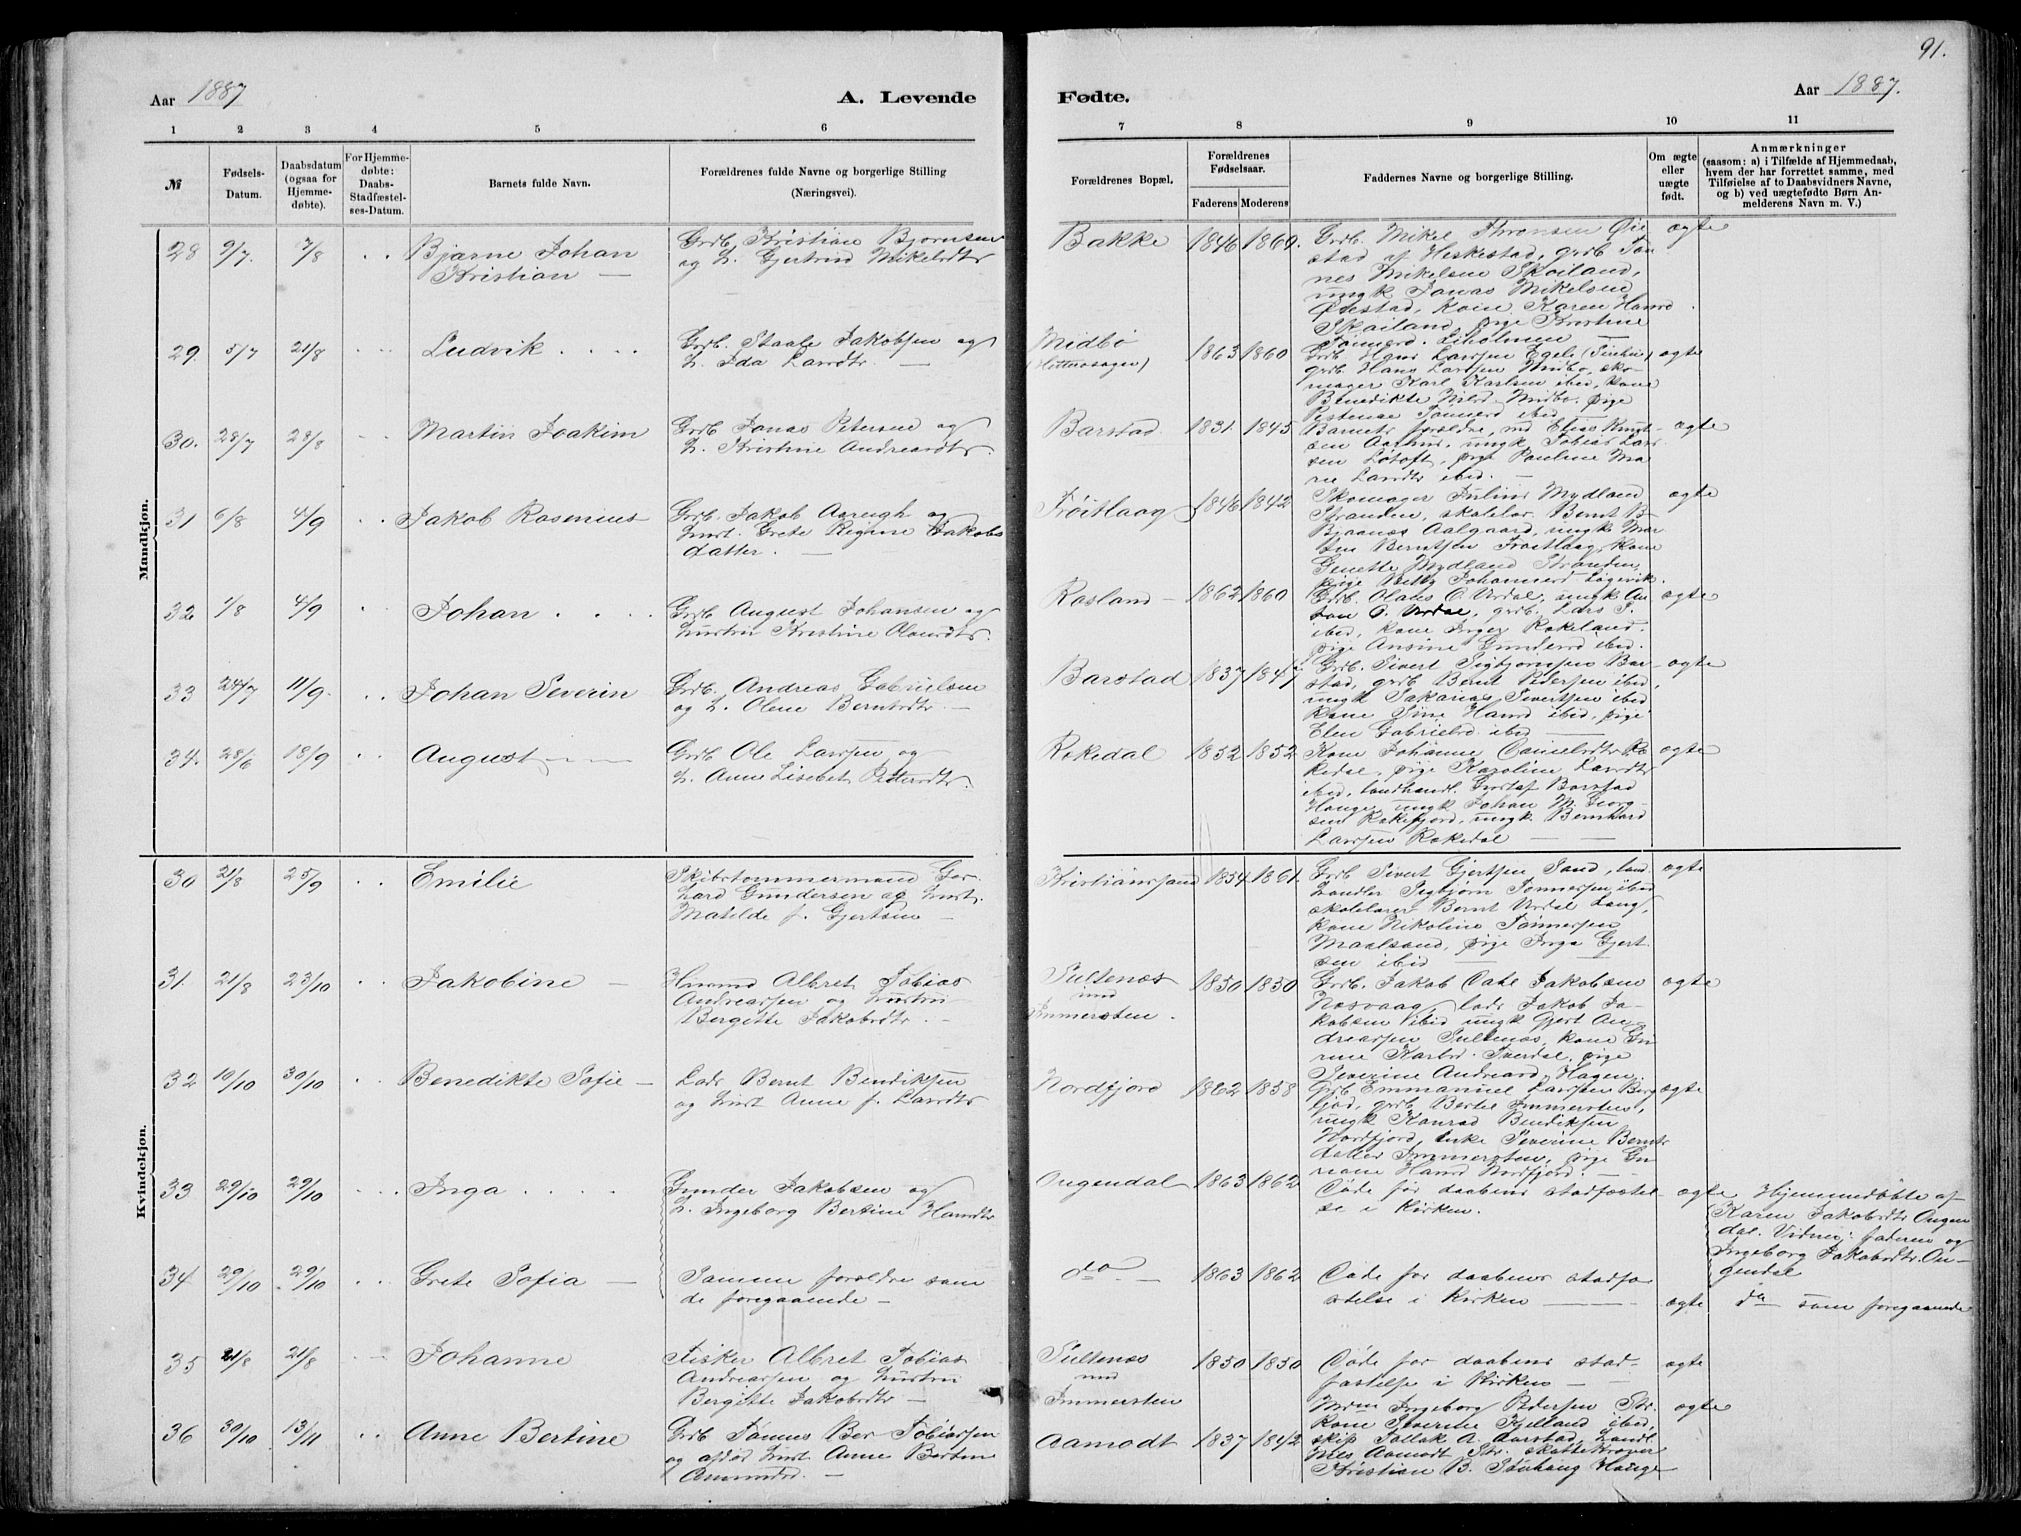 91.
Aar 1887
A. Levende
Fødte.
Aar 1887.
1 2 3 4 5 6
7 8 9 10 11
№
Fødsels-
Datum.
Daabsdatum
(ogsaa for
Hjemme-
døbte).
For Hjemme-
døbte:
Daabs-
Stadfæstel-
ses-Datum.
Barnets fulde Navn.
Forældrenes fulde Navne og borgerlige Stilling
(Næringsvei).
Forældrenes Bopæl.
Forældrenes
Fødselsaar.
Faderens Moderens
Faddernes Navne og borgerlige Stilling.
Om ægte
eller
uægte
født.
Anmærkninger
(saasom: a) i Tilfælde af Hjemmedaab,
hvem der har forrettet samme, med
Tilføielse af to Daabsvidners Navne,
og b) ved uægtefødte Børn An-
melderens Navn m. V.)
Mandkjøn.
28 9/7. 7/8 Bjarne Johan
Kristian —
Grdb. Kristian Bjørnsen
og h. Gjertrud Mikelsdtr
Bakke 1846 1860.
Grdb. Mikel Thronsen Øie
stad af Heskestad, grdb. Tøn
nes Mikelsen Skoiland,
ungk Jonas Mikelsen
Øiestad, kone Karen Hansd
Skailand, pige Kristine
Tønnesd. Liholmen —
ægte
29. 5/7 21/8 Ludvik . . . .
Grdb. Staale Jakobsen og
h. Ida Larsdtr. —
Midbø 1863 1860
Grdb. Hans Larssen Egele
grdb. Hans Larssen Midbø, sko-
mager Karl Karlsen ibid, kone
Benedikte Nilsd. Midbø. pige
Tønnesd ibid —
ægte
30. 28/7 28/8 Martin Joakim
Grdb Jonas Petersen og
h. Kristine Andreasdtr.
Barstad 1831 1845
Barnets forældre, Elias Knut-
sen Aarhus, ungk Tobias Lar
sen Løtoft, pige Pauline Ma
rie Larsdtr ibid. —
ægte
31 6/8 4/9 Jakob Rosenius
Grdb. Jakob Aarengh og
hust. Grete Regine Jakobs
datter. —
Frøitlaag 1846 1842
Skomager Julius Mydland
Stranden, skolelær. Bernt B.
Bjaanæs Aalgaard, ungk Mar
tin Berntsen Frøitlaag, kone
Genette Mydland Stranden,
pige Netty Johannesd Løgevik.
ægte
32 1/8 4/9 Johan . . .
Grdb August Johansen og
hustru Kristine Olausdtr.
Rosland 1862 1860
Grdb. Olaus O. Urdal, ungk An
ton O. Urdal, grdb. Lars S.
ibid, kone Inger Rekeland.
pige Ansine Gundersd ibid.
ægte
33 24/7 11/9. Johan Severin
Grdb. Andreas Gabrielsen
og h. Olene Berntsdtr. —
Barstad 1837 1847
Grdb. Sivert Sigbjørnsen Bar-
stad, grdb Bernt Pedersen ibid,
ungk Sakarias Sivertsen ibid
kone Sine Hansd ibid, pige
Elen Gabrielsd ibid —
ægte
34. 28/6 18/9 August —
Grdb Ole Larssen og
h. Anne Lisebet Pettersdtr.
Rekedal 1852 1852
Kone Johanne Danielsdtr Re
kedal, pige Karoline Larsdtr
ibid, landhandl. Gustaf Barstad
Hauge, ungk Johan M. Georg-
sen Rekefjord, ungk Bernhard
Larssen Rekedal —
ægte
Kvindekjøn.
30 21/8 25/9 Emilie
Skibstømmermand Ger
hard Gundersen og hust.
Matilde f. Gjertsen —
Kristianssand 1854 1861.
Grdb Sivert Gjertsen Sand, land
handler Sigbjørn Tønnessen ibid
skolelærer Bernt Urdal Haug,
kone Nikoline Tønnessen
Maalsand, pige Inga Gjert
sen ibid —
ægte
31. 21/8 23/10 Jakobine —
Husmd Albret Tobias
Andreassen og hustru
Bergitte Jakobsdtr. —
Sultenæs
ved
Immersten. 1850 1850
Grdb. Jakob Jakobsen
Nesvaag, lods Jakob Ja-
kobsen ibid ungk Gjert An-
dreassen Sultenæs, kone
Karlsd. Tverdal, pige
Severine Andreasd. Hagen.
ægte
32 10/10 30/10 Benedikte Sofie —
Lods Bernt Bendiksen
og hust Anne f. Larsdtr
Nordfjord 1862 1858
Grdb Emmanuel Larssen Berg
grdb Bertel Immersten,
ungk Konrad Bendiksen
Nordfjord, enke Severine Bernts
datter Immersten, pige
Hansd Nordfjord. —
ægte
33 29/10 29/10 Inga . . . .
Gunder Jakobsen og
h. Ingeborg Bertine Hansdtr
Ougendal 1863 1862
Døde før daabens stadfæstel-
se i kirken.
ægte
Hjemmedøbte af
Karen Jakobsdtr Ougen
dal. Vidner: faderen og
Ingeborg Jakobsdtr. Ou-
gendal
34 29/10 29/10 Grete Sofia —
Samme forældre som
de foregaaende —
do — 1863 1862
Døde før daabens stadfæ
stelse i kirken —
ægte
do som foregaaende
35 21/8 21/8 Johanne
Fisker Albret Tobias
Andreassen og hustru
Bergitte Jakobsdtr —
Sultenæs
ved
Immersten 1850 1850
Døde før daabens stad-
fæstelse i kirken —
ægte
36 30/10 13/11 Anne Bertine
Grdb Tønnes Ber Tobiassen
og afdød hust Anne Bertine
Aanensd. —
Aamodt 1837 1842
Ingeborg Pedersen Str.
kone Severine Kjelland ibid,
skip Tollak A. Aarstad, landh.
Nils Aamodt Str. skattekræver
Kristian B. Hauge
ægte